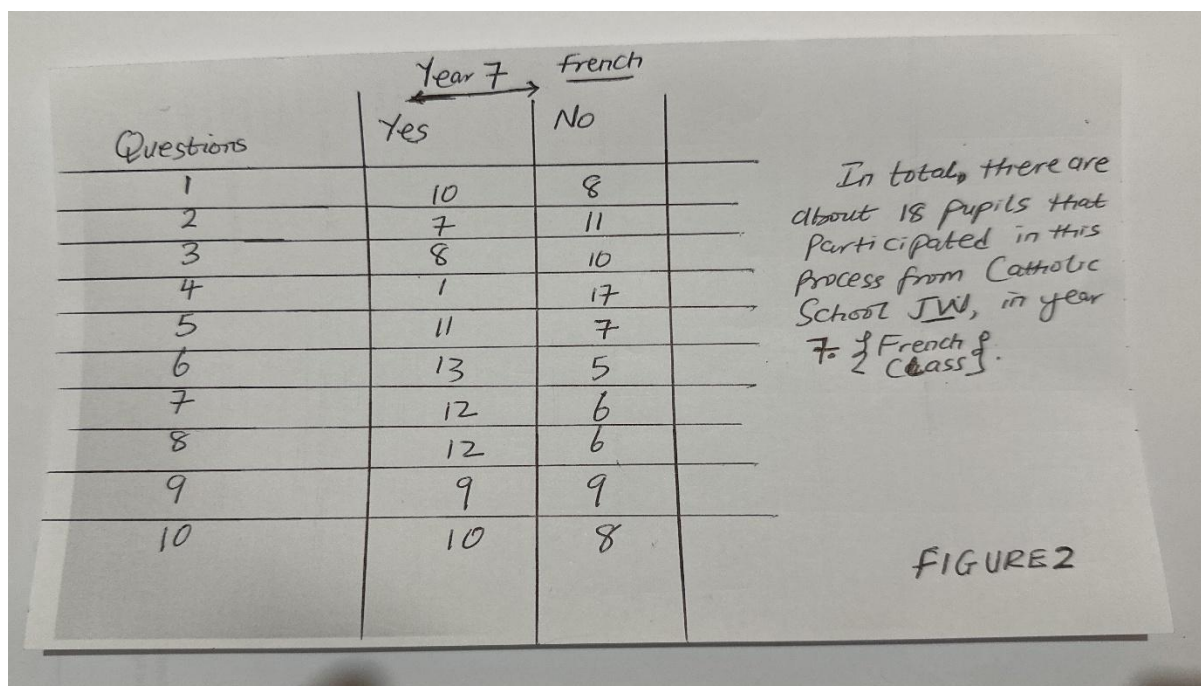 Year 7 French
Questions Yes No
1 10 8
2 7 11
3 8 10
4 1 17
5 11 7
6 13 5
7 12 6
8 12 6
9 9 9
10 10 8
In total, there are
about 18 pupils that
Participated in this
Process from Catholic
School JW, in year
7. {French
Class}.
FIGURE 2